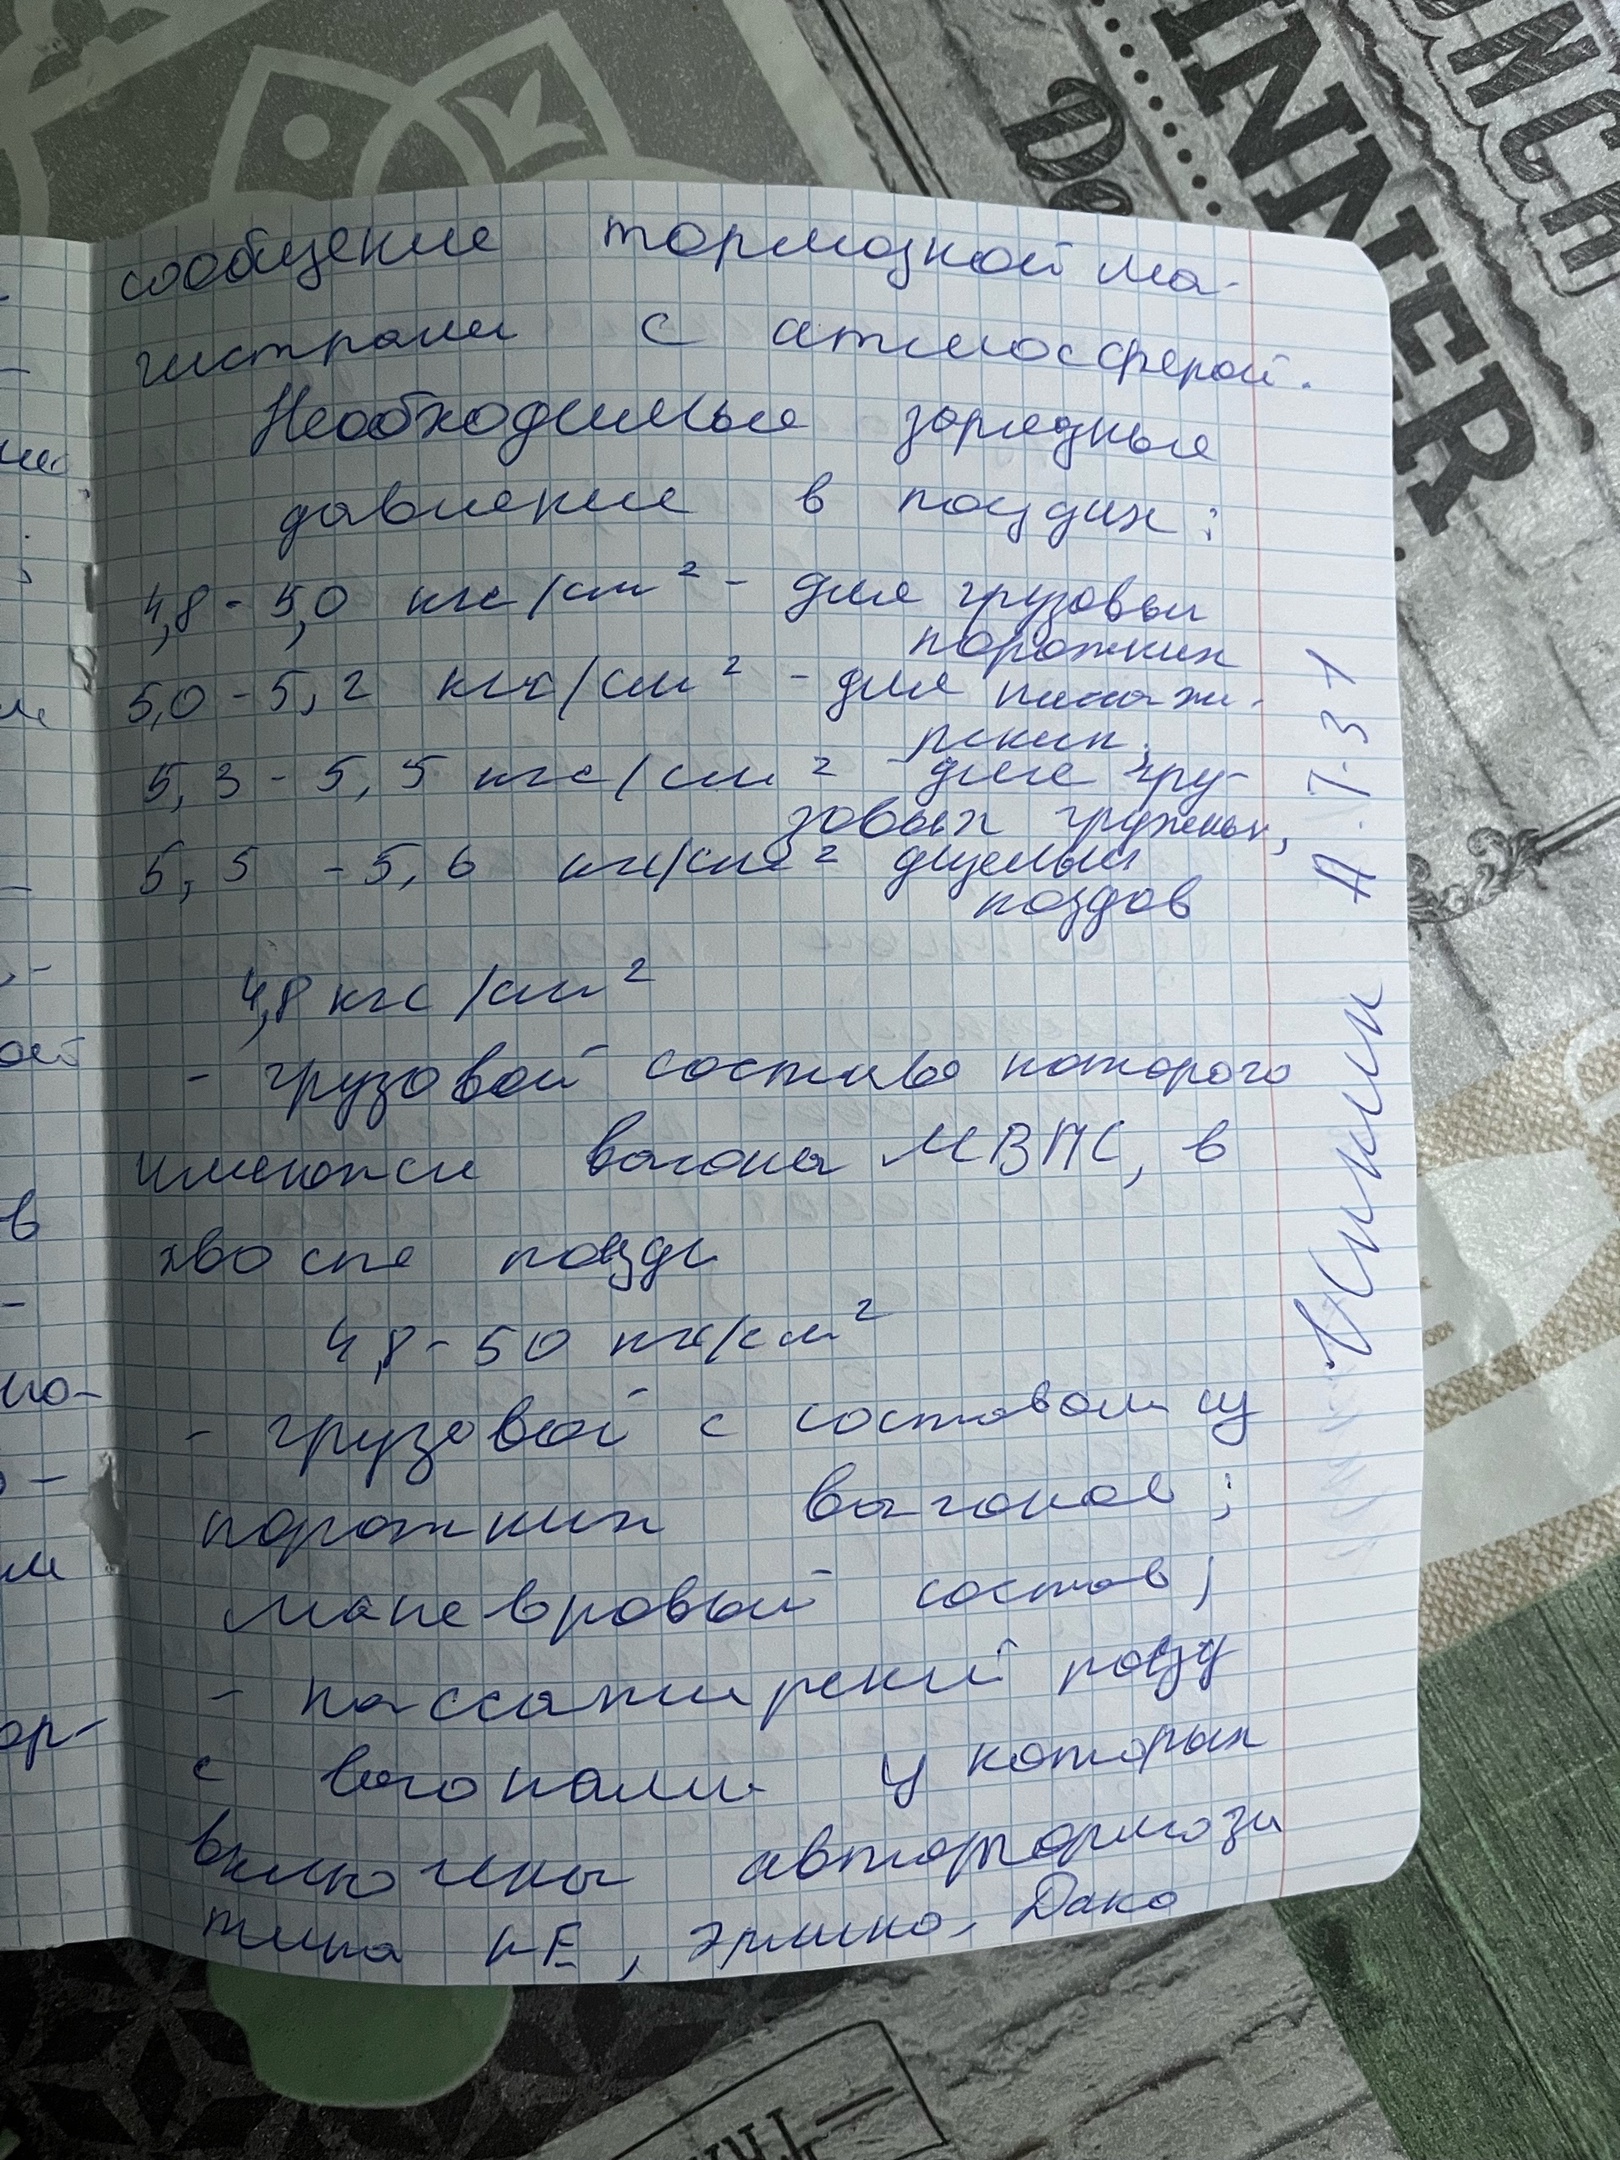 сообщение тормозной ма-
гистрали с атмосферой.
Необходимые зарядные
давление в поездах:
4,8 - 5,0 кгс/см² - для грузовых
порожних
5,0 - 5,2 кгс/см² - для пассажи-
рских.
5,3 - 5,5 кгс/см² для гру-
зовых груженых,
5,5 - 5,6 кгс/см²
поездов
4,8 кгс/см²
- грузовой состава которого
имеются вагоны МВПС, в
хвосте
4,8 - 50 кгс/см²
- грузовой с составом из
порожних вагонов;
маневровый состав;
- пассажирский поезд
с вагонами у которых
включены автотормоза
типа КЕ, Эрликон, Дако
А.Т.З Х
INNER
UNCH
De